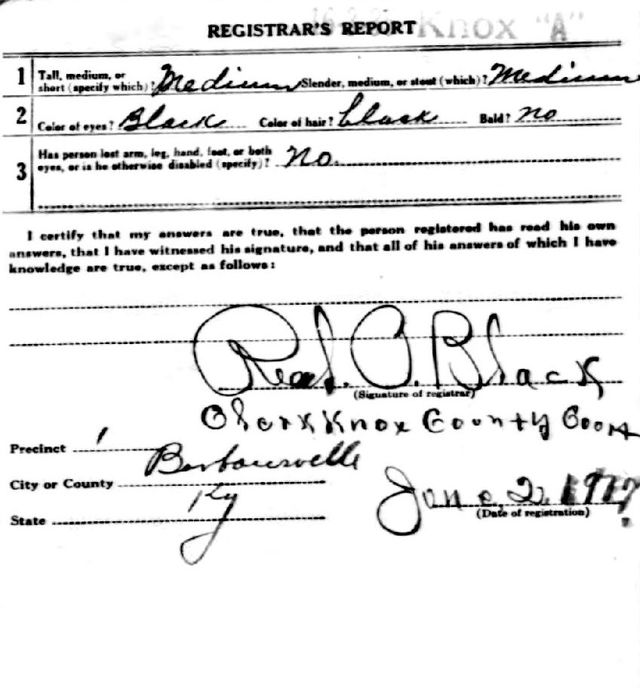 Knox "A"
REGISTRAR'S REPORT
1 Tall, medium, or short (specify which)? Medium Slender, medium, or stout (which)? Medium
2 Color of eyes? Black Color of hair? black Bald? no
3 Has person lost arm, leg, hand, foot, or both eyes, or is he otherwise disabled (specify)? No.
I certify that my answers are true, that the person registered has read his own
answers, that I have witnessed his signature, and that all of his answers of which I have
knowledge are true, except as follows:
Read. O. Black
(Signature of registrar)
Clerk Knox County Court
Precinct 1
City or County Barbourville
State Ky
June 2, 1917
(Date of registration)